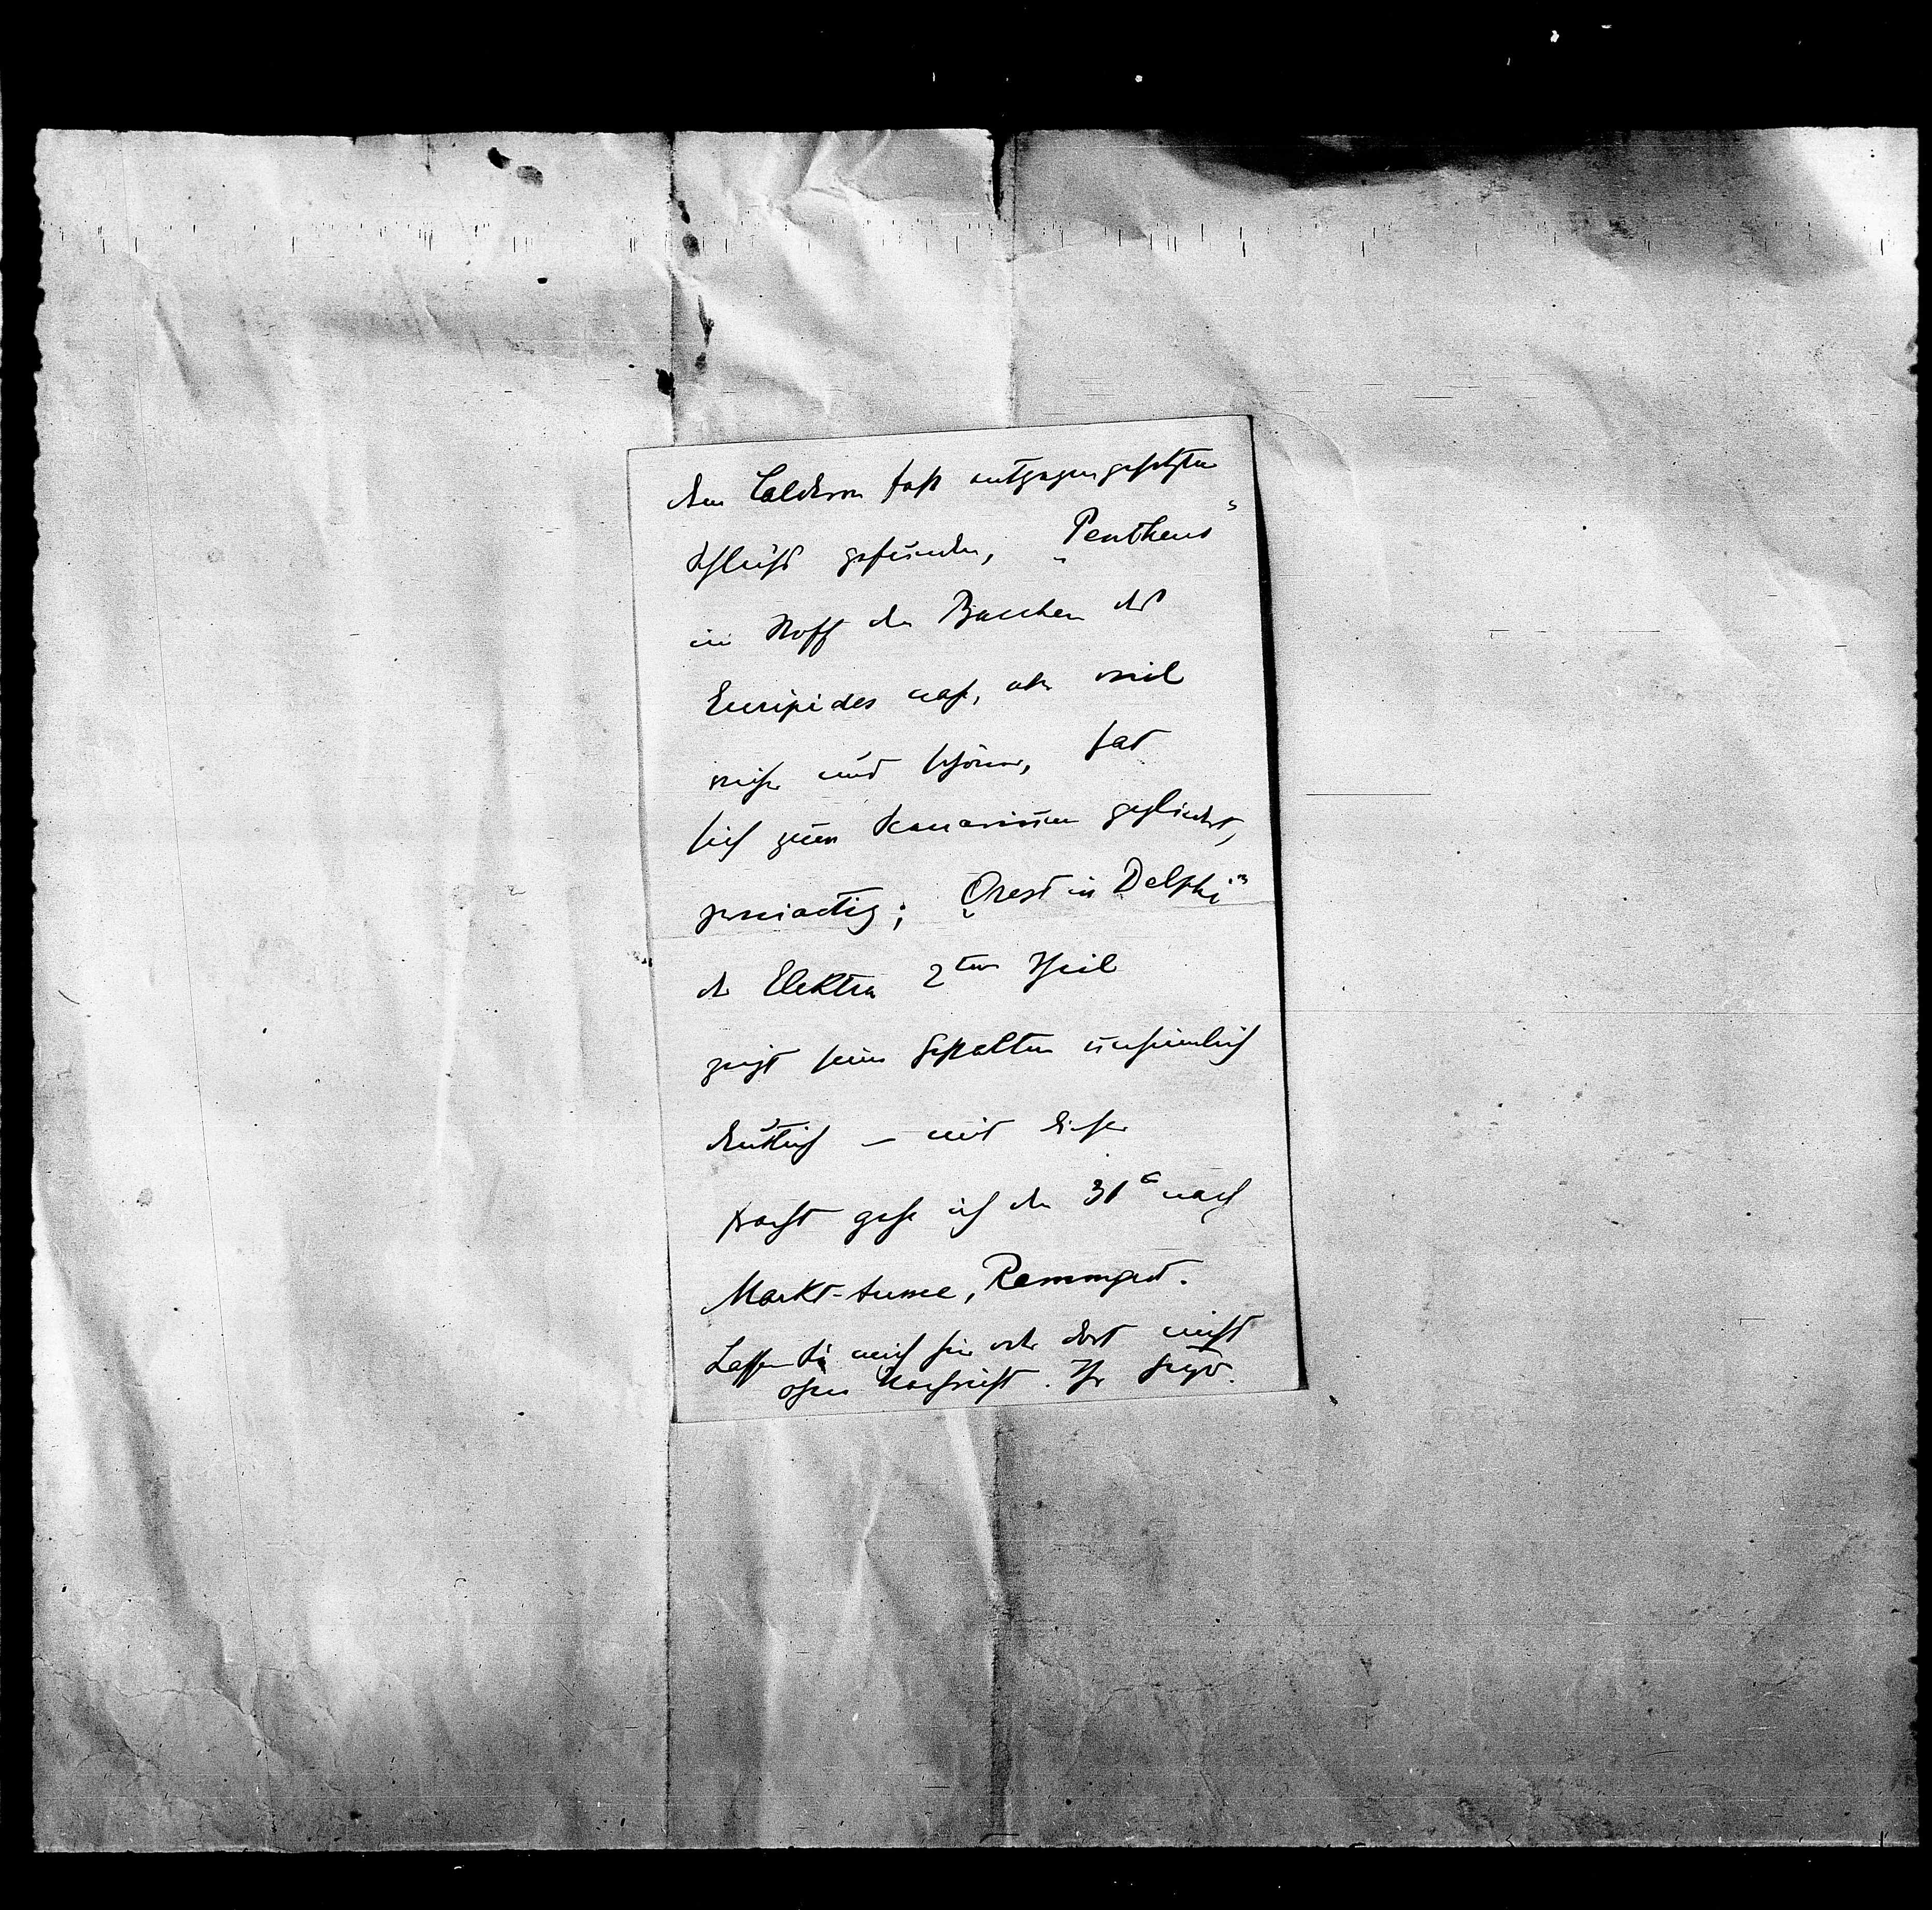 dem Calderon fast entgegengesetzten
Schluss gefunden, „Pentheus"
im Stoff den Bacchen des
Euripides nah, aber viel
reicher und schöner, hat
sich zum Scenarium gegliedert,
zweiactig; „Orest in Delphi"
der Elektra 2ter Theil
zeigt seine Gestalten unheimlich
deutlich – mit dieser
Fracht gehe ich den 31ten nach
Markt-Aussee, Ramgut.
Lassen Sie mich hier oder dort nicht
ohne Nachricht. Ihr Hugo.